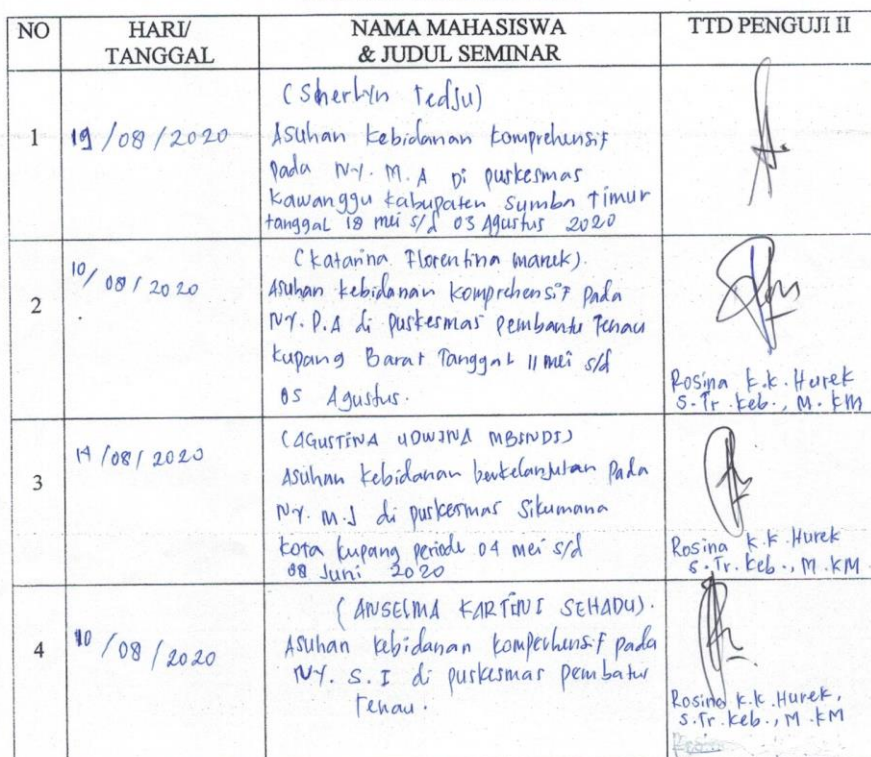 NO HARI/ TANGGAL NAMA MAHASISWA & JUDUL SEMINAR TTD PENGUJI II
1 19/08/2020
(Sherlyn Tedju)
Asuhan Kebidanan komprehensif
pada NY. M.A Di puskesmas
Kawanggu Kabupaten Sumba Timur
tanggal 18 mei s/d 03 Agustus 2020
2 10/08/2020
(Katarina Florentina Manek).
Asuhan kebidanan komprehensif pada
NY. P.A di puskesmas pembantu Tenau
Kupang Barat Tanggal 11 mei s/d
05 Agustus.
Rosina K.K. Hurek
S.Tr.Keb., M.KM
3 14/08/2020
(AGUSTINA MBINDI)
Asuhan kebidanan berkelanjutan Pada
NY. M.J di puskesmas Sikumana
Kota Kupang periode 04 mei s/d
08 Juni 2020
Rosina K.K. Hurek
S.Tr.Keb., M.KM.
4 10/08/2020
(ANSELMA KARTINI SEHADU).
Asuhan kebidanan komperhensif pada
NY. S.I di puskesmas pembatu
Tenau.
Rosina K.K. Hurek,
S.Tr.Keb., M.KM